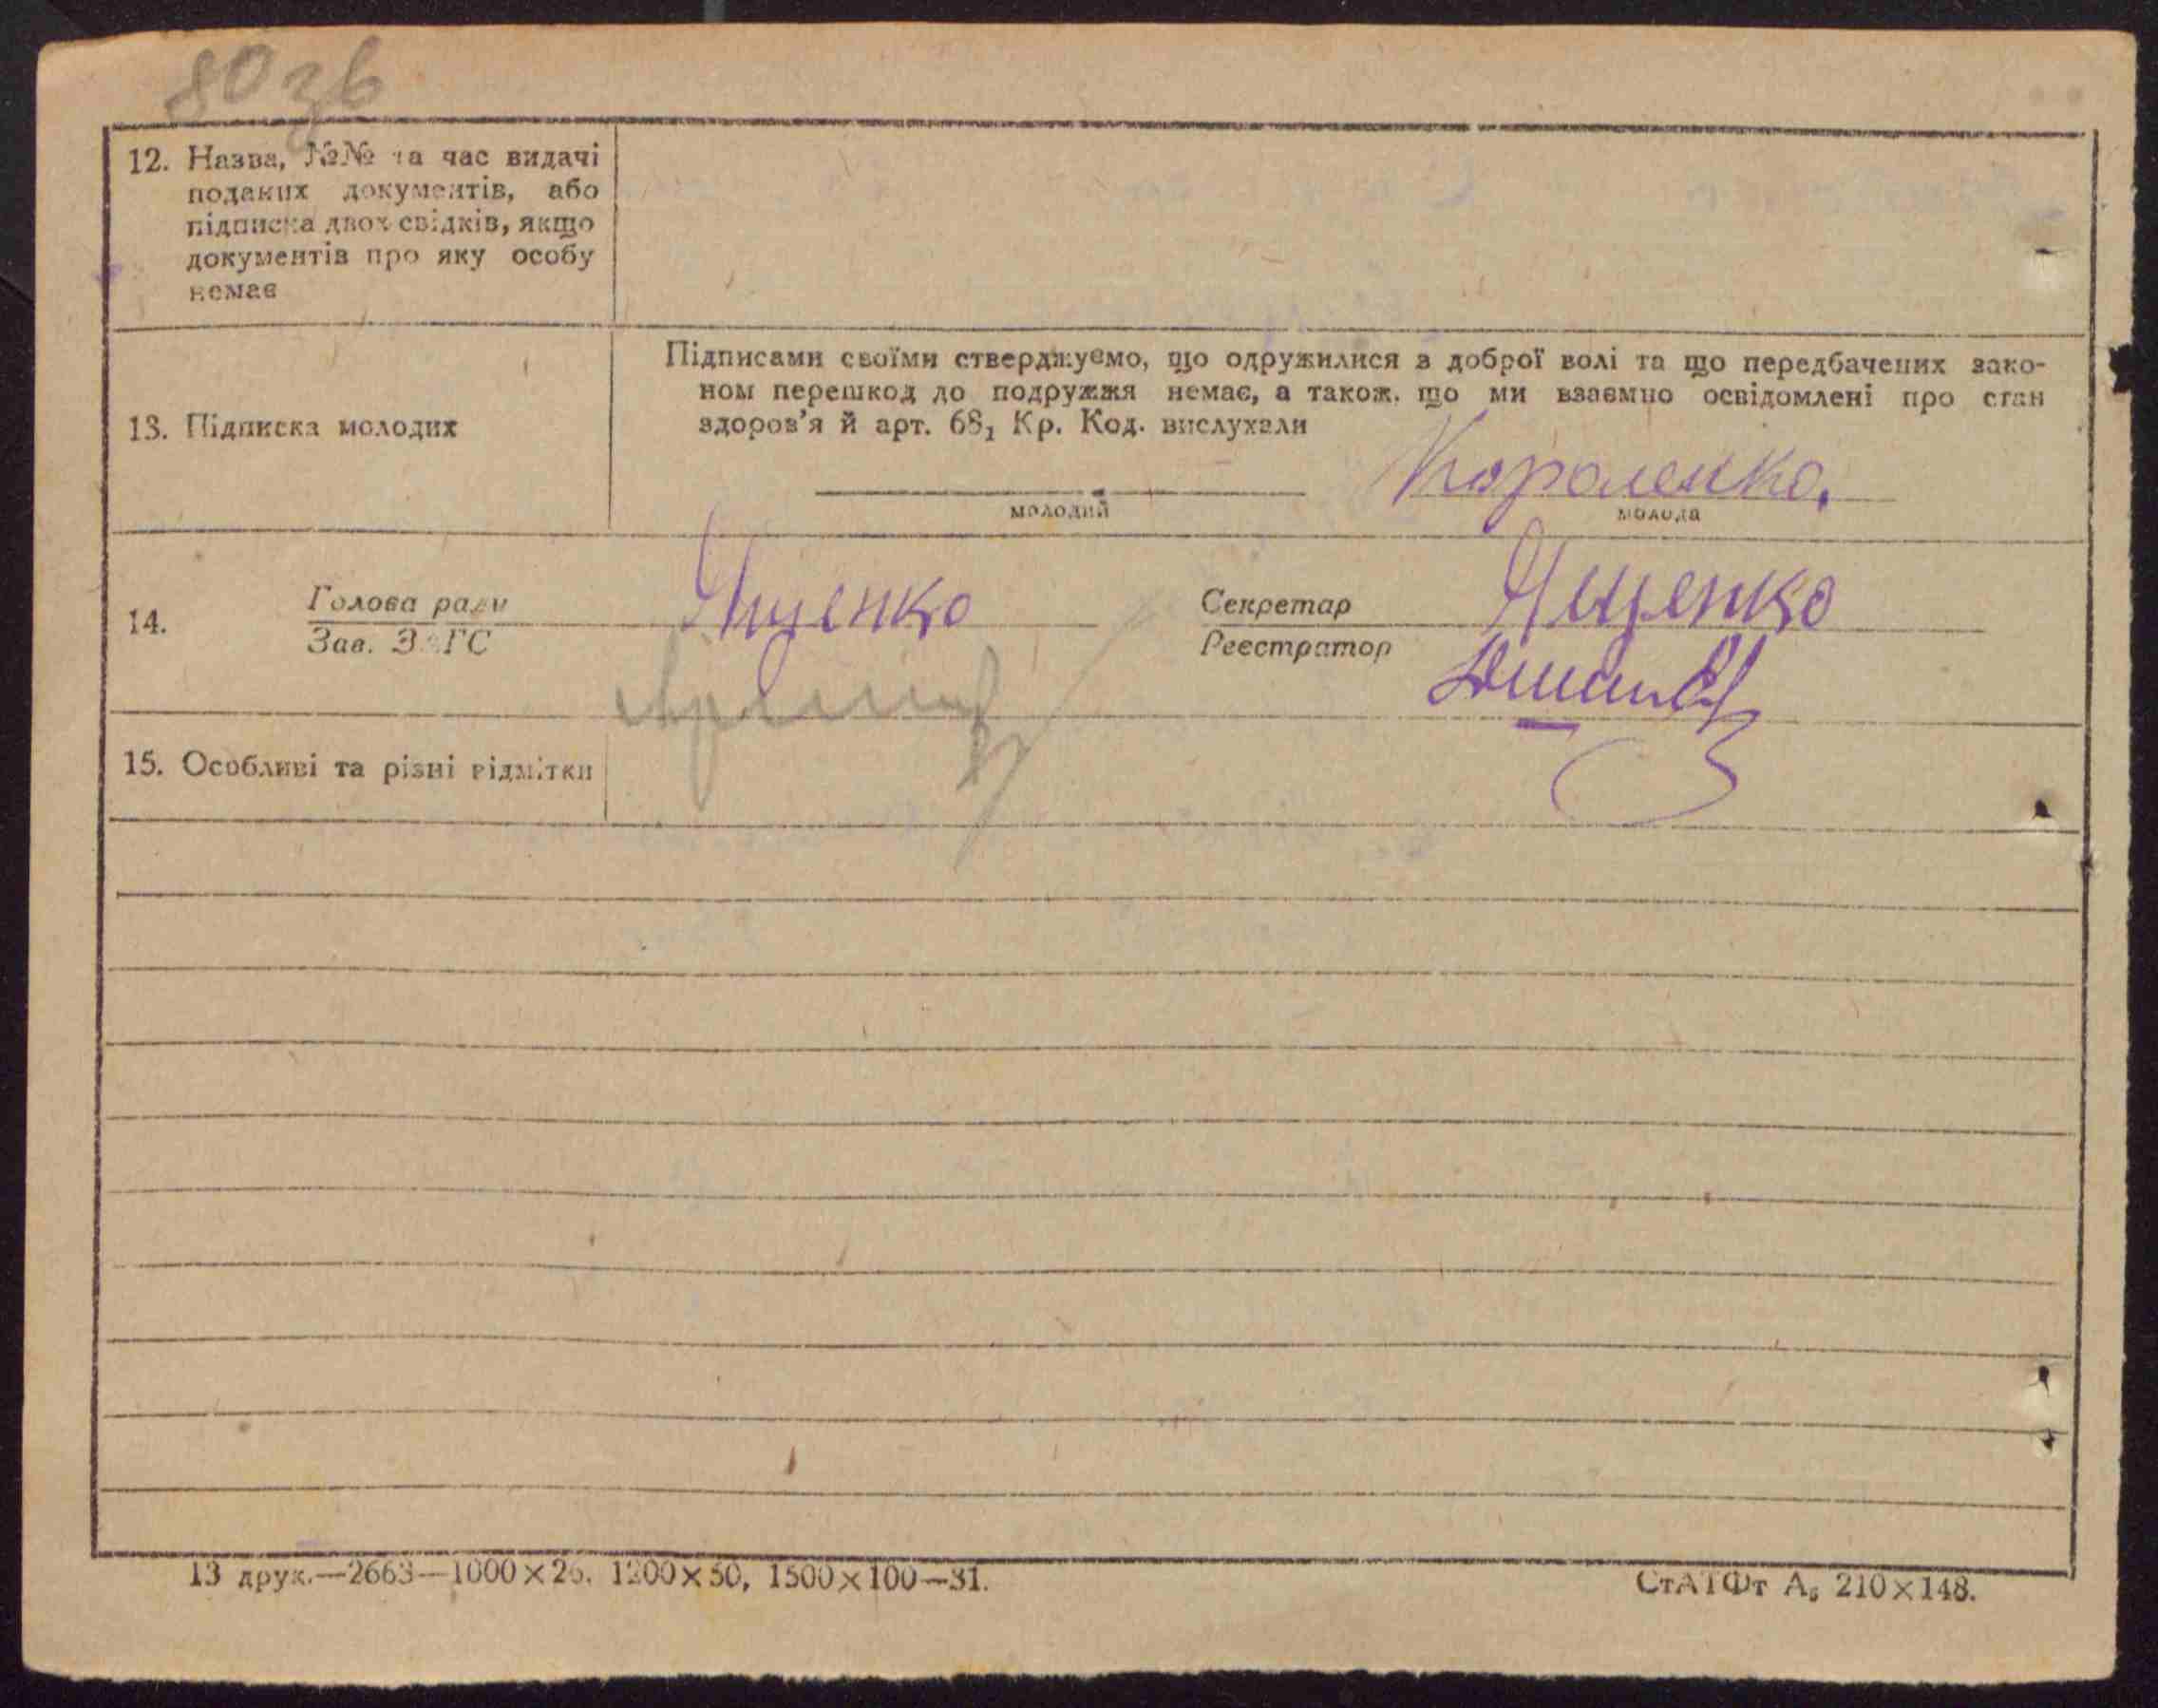 80 зв
12. Назва, №№ та час видачі
поданих документів, або
підписка двох свідків, якщо
документів про яку особу
немає
Підписами своїми стверджуємо, що одружилися з доброї волі та що передбачених зако-
ном перешкод до подружжя немає, а також, що ми взаємно освідомлені про стан
здоров'я й арт. 68₁ Кр. Код. вислухали
13. Підписка молодих
Короленко.
молодий молода
14. Голова ради Ященко Секретар Ященко
Зав. ЗАГС Реєстратор
15. Особливі та різні відмітки
13 друк.—2663—1000×25, 1200×50, 1500×100—31.
СтАТФт А₅ 210×148.